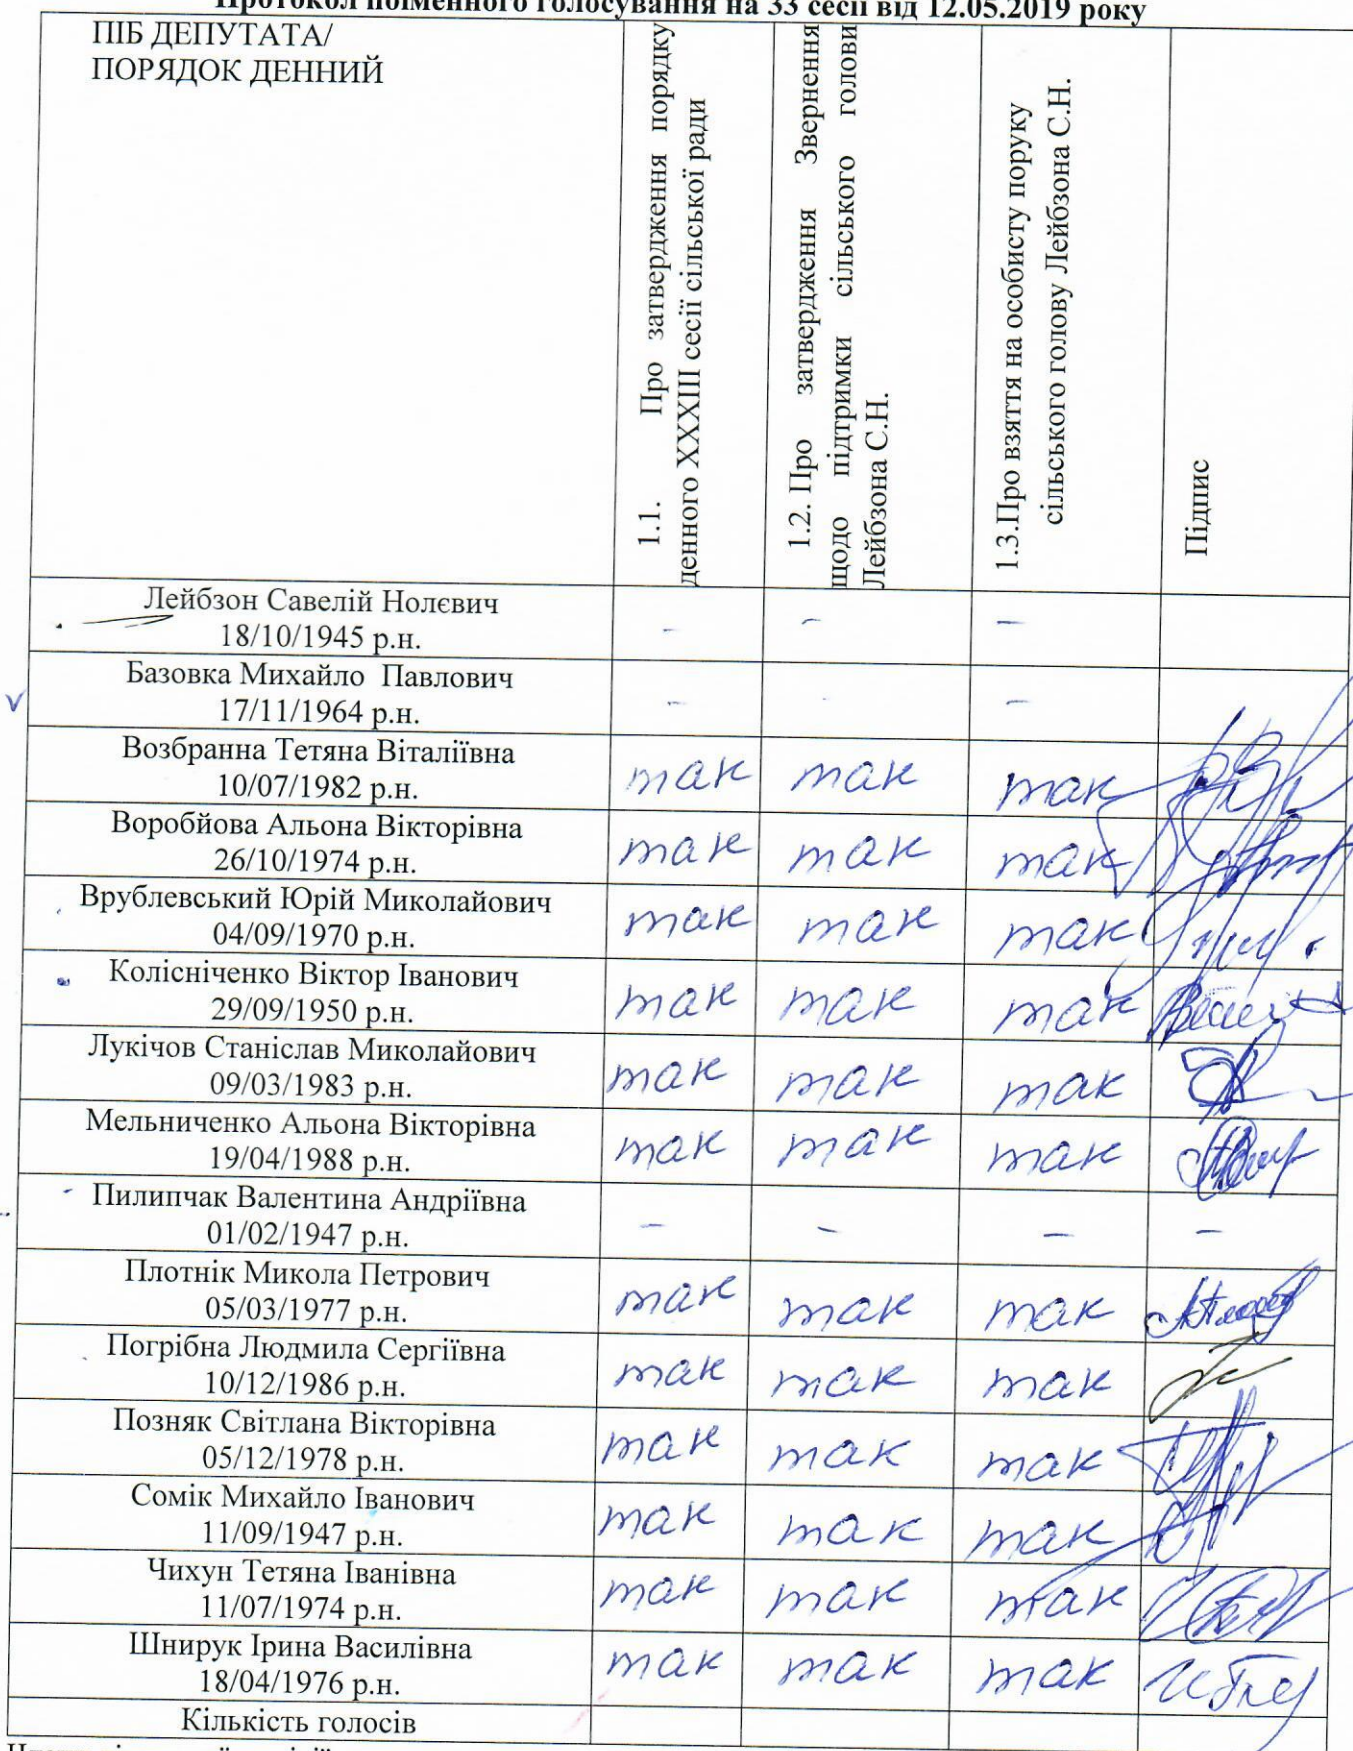 Протокол поіменного голосування на 33 сесії від 12.05.2019 року
ПІБ ДЕПУТАТА/
ПОРЯДОК ДЕННИЙ
1.1. Про затвердження порядку
денного ХХХІІІ сесії сільської ради
1.2. Про затвердження Звернення
щодо підтримки сільського голови
Лейбзона С.Н.
1.3.Про взяття на особисту поруку
сільського голову Лейбзона С.Н.
Підпис
Лейбзон Савелій Нолєвич
18/10/1945 р.н. - - -
Базовка Михайло Павлович
17/11/1964 р.н. - - -
Возбранна Тетяна Віталіївна
10/07/1982 р.н. так так так
Воробйова Альона Вікторівна
26/10/1974 р.н. так так так
Врублевський Юрій Миколайович
04/09/1970 р.н. так так так
Колісніченко Віктор Іванович
29/09/1950 р.н. так так так
Лукічов Станіслав Миколайович
09/03/1983 р.н. так так так
Мельниченко Альона Вікторівна
19/04/1988 р.н. так так так
Пилипчак Валентина Андріївна
01/02/1947 р.н. - - - -
Плотнік Микола Петрович
05/03/1977 р.н. так так так
Погрібна Людмила Сергіївна
10/12/1986 р.н. так так так
Позняк Світлана Вікторівна
05/12/1978 р.н. так так так
Сомік Михайло Іванович
11/09/1947 р.н. так так так
Чихун Тетяна Іванівна
11/07/1974 р.н. так так так
Шнирук Ірина Василівна
18/04/1976 р.н. так так так
Кількість голосів